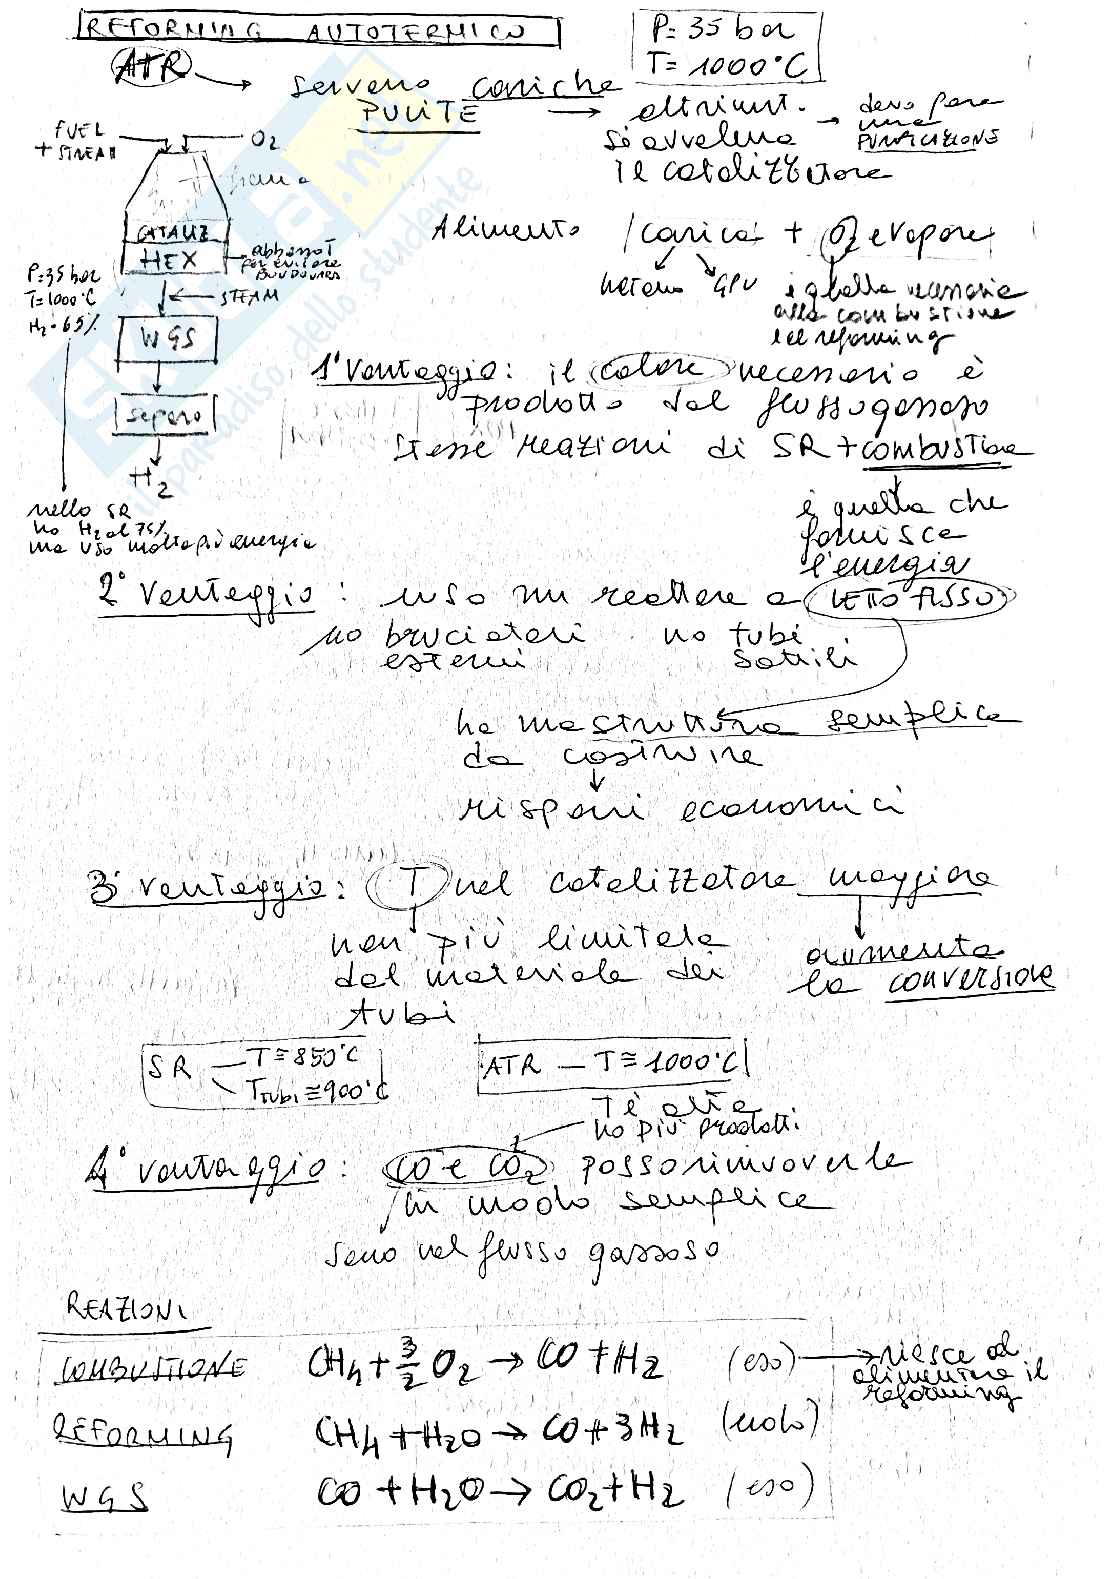 REFORMING AUTOTERMICO
P= 35 bar
T= 1000°C
ATR → servono cariche PULITE → altrimenti
si avvelena
il catalizzatore
→ devo fare
una
PURIFICAZIONE
FUEL
+ STEAM
O2
CATALIZ
HEX
abbasso T
per evitare
BOUDOUARD
P=35 bar
T=1000°C
H2=65%
STEAM
WGS
separo
H2
nello SR
ho H2 al 75%
ma uso molta più energia
Alimento carica + O2 e vapore
metano GPL
è quella necessaria
alla combustione
e al reforming
1° vantaggio: il calore necessario è
prodotto dal flusso gassoso
stesse reazioni di SR + combustione
è quella che
fornisce
l'energia
2° vantaggio: uso un reattore a LETTO FISSO
no bruciatori
esterni
no tubi
sottili
ha una struttura semplice
da costruire
risparmi economici
3° vantaggio: T nel catalizzatore maggiore
non più limitata
dal materiale dei
tubi
aumenta
la conversione
SR — T≅850°C
Ttubi≅900°C
ATR — T≅1000°C
T è alta
ho più prodotti
4° vantaggio: CO e CO2 posso rimuoverle
in modo semplice
sono nel flusso gassoso
REAZIONI
COMBUSTIONE CH4 + 3/2 O2 → CO + H2 (eso) → riesce ad
alimentare il
reforming
REFORMING CH4 + H2O → CO + 3H2 (endo)
WGS CO + H2O → CO2 + H2 (eso)
Skuola.net
il paradiso dello studente